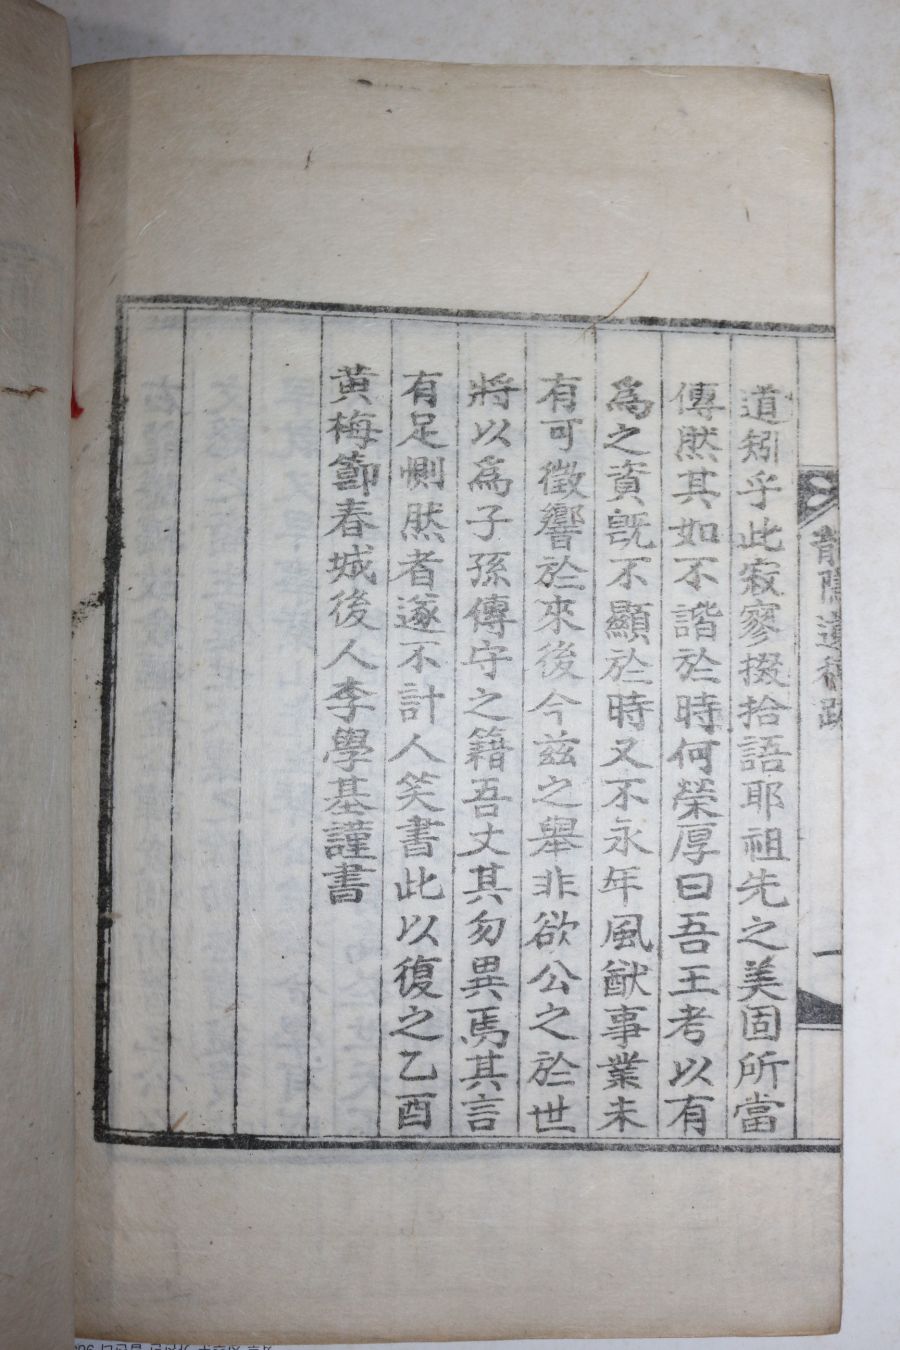 道矧乎此寂寥掇拾語耶祖先之美固所當
傳然其如不諧於時何榮厚曰吾王考以有
爲之資旣不顯於時又不永年風猷事業未
有可徵響於來後今玆之擧非欲公之於世
將以爲子孫傳守之籍吾丈其勿異焉其言
有足惻然者遂不計人笑書此以復之乙酉
黃梅節春城後人李學基謹書